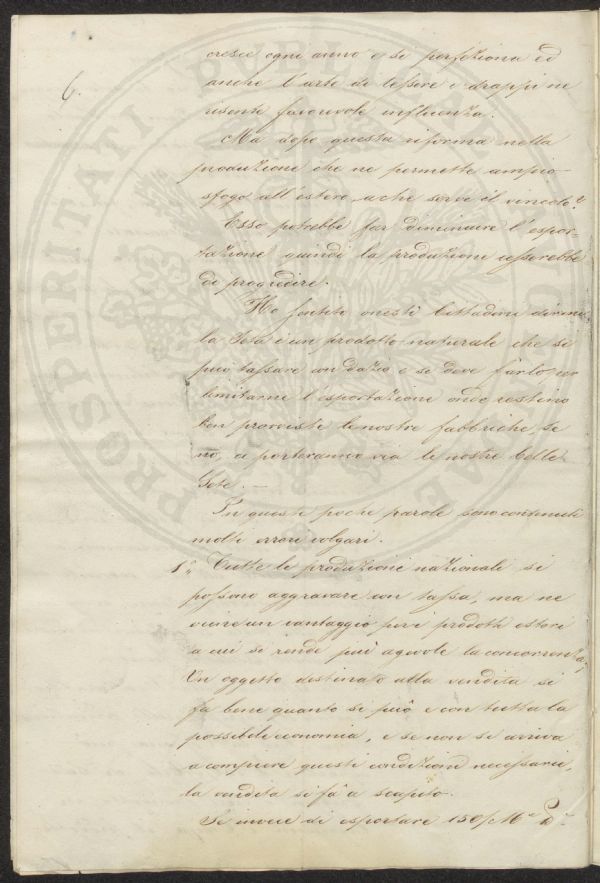 6.
cresce ogni anno e si perfeziona ed
anche l'arte di tessere i drappi ne
risente favorevole influenza.
Ma dopo questa riforma nella
produzione che ne permette ampio
sfogo all'estero, a che serve il vincolo?
Esso potrebbe far diminuire l'espor-
tazione quindi la produzione cesserebbe
di progredire.
Ho sentito onesti Cittadini dirmi
la Seta è un prodotto naturale che si
può tassare con dazio e se deve farlo per
limitarne l'esportazione onde restino
ben provviste le nostre fabbriche, se
no, ci porteranno via le nostre belle
Sete. —
In queste poche parole sono contenuti
molti errori volgari.
1° Tutte le produzioni nazionali si
possono aggravare con tassa, ma ne
viene un vantaggio per i prodotti esteri
a cui si rende più agevole la concorrenza;
Un oggetto destinato alla vendita si
fa bene quanto si può e con tutta la
possibile economia, e se non si arriva
a compiere questi condizioni necessarie,
la vendita si fa a scapito.
Se invece di esportare 150/M
PROSPERITATI PUBLICAE